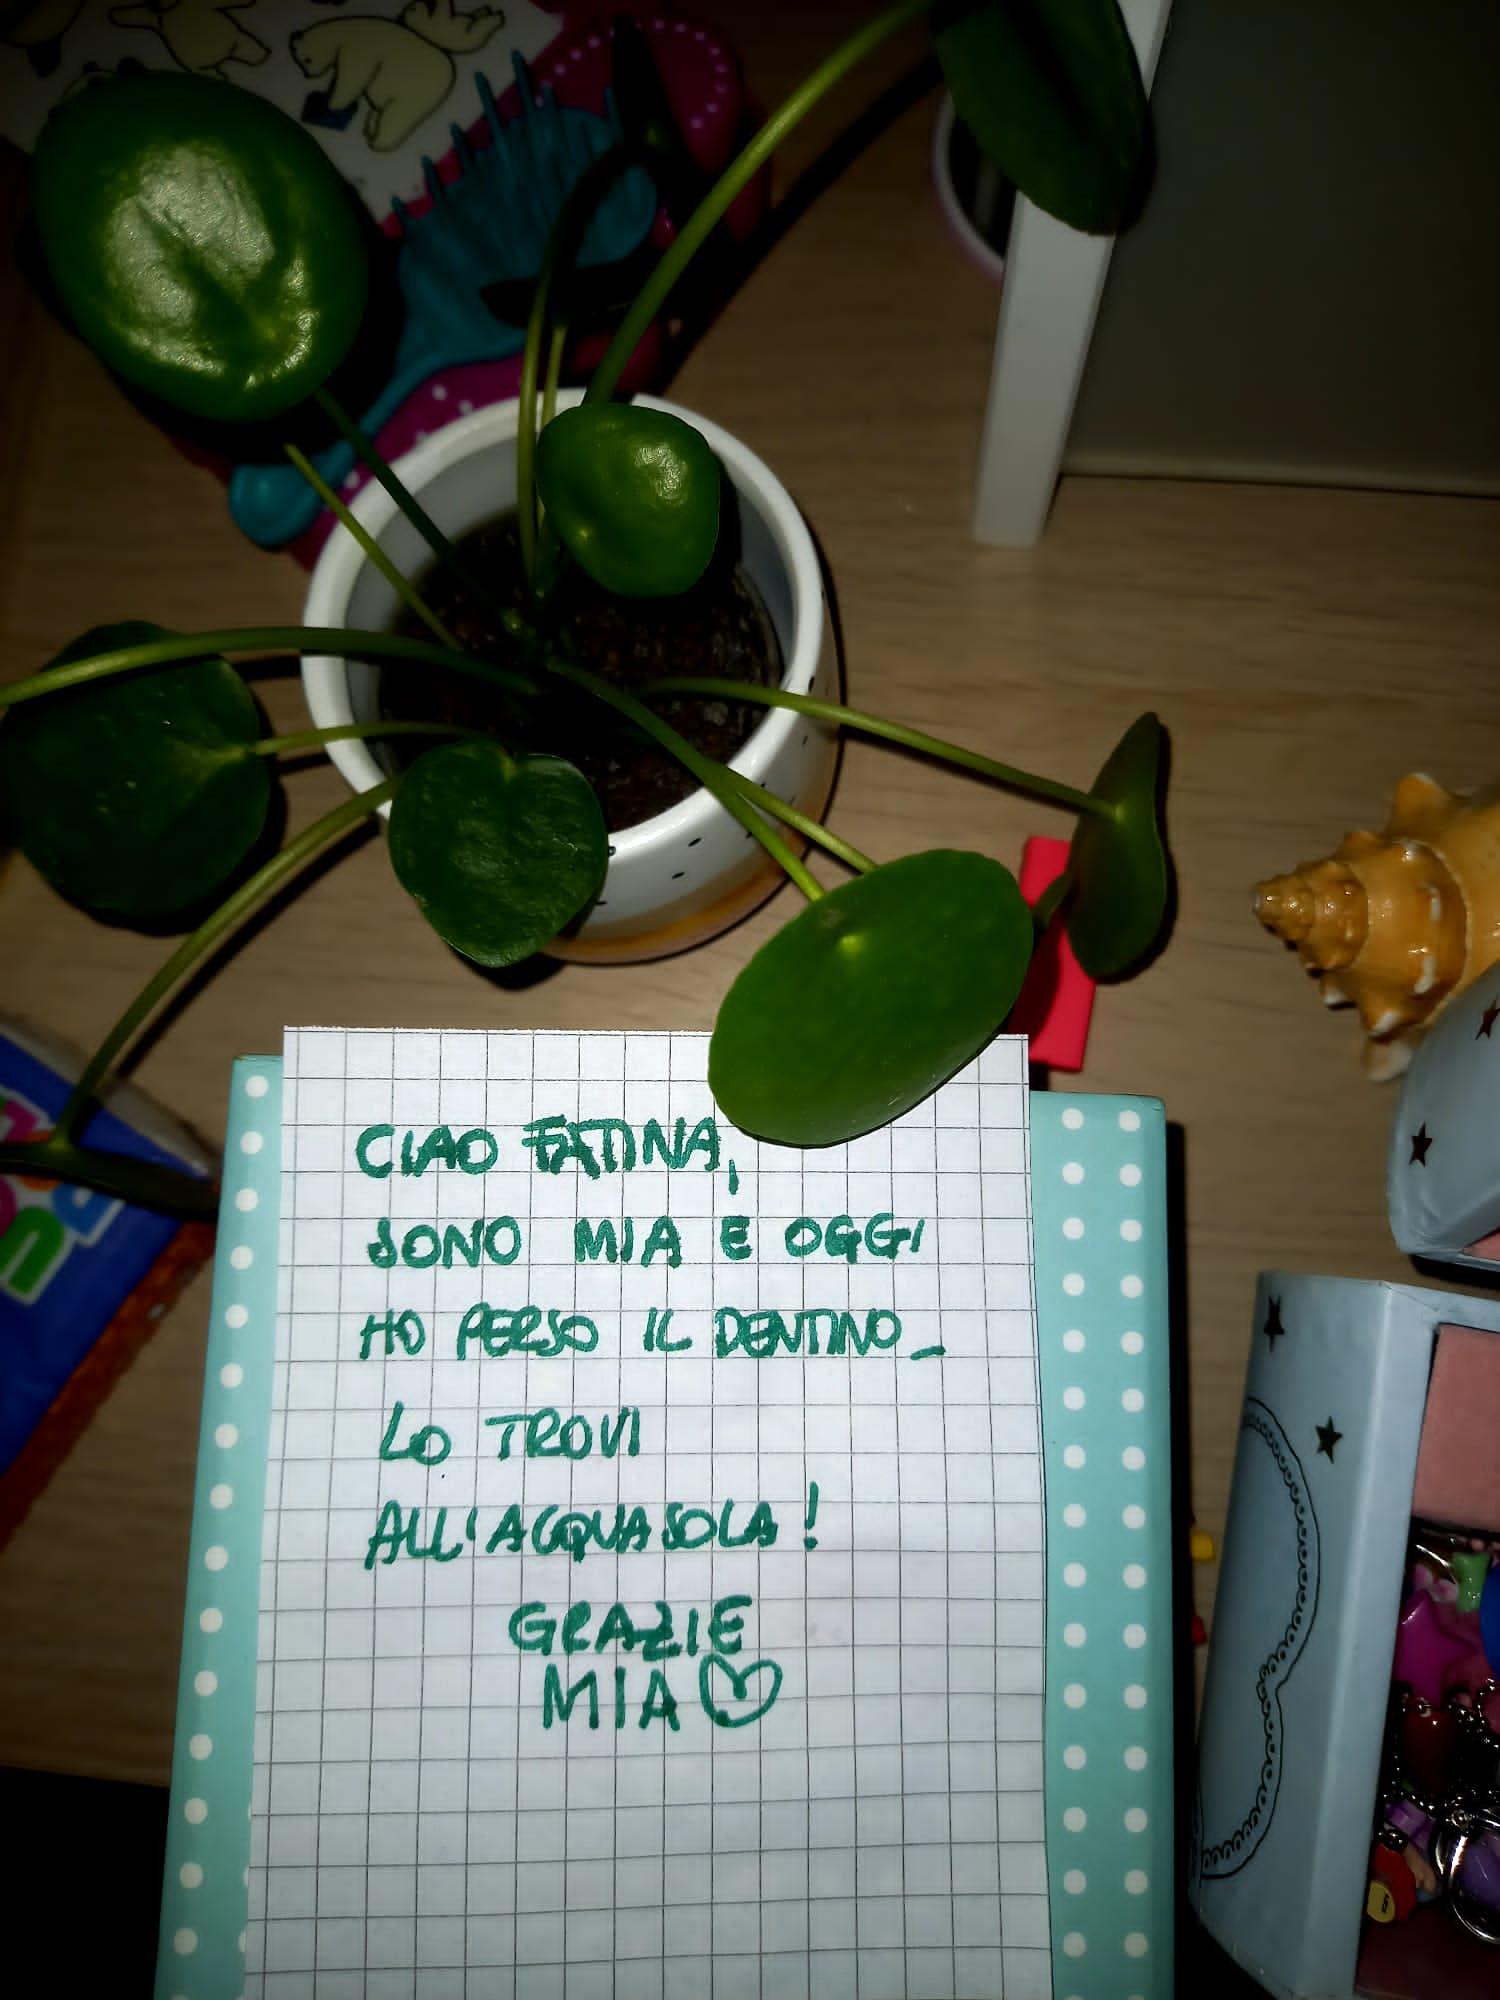 CIAO FATINA,
SONO MIA E OGGI
HO PERSO IL DENTINO_
LO TROVI
ALL'ACQUASOLA!
GRAZIE
MIA